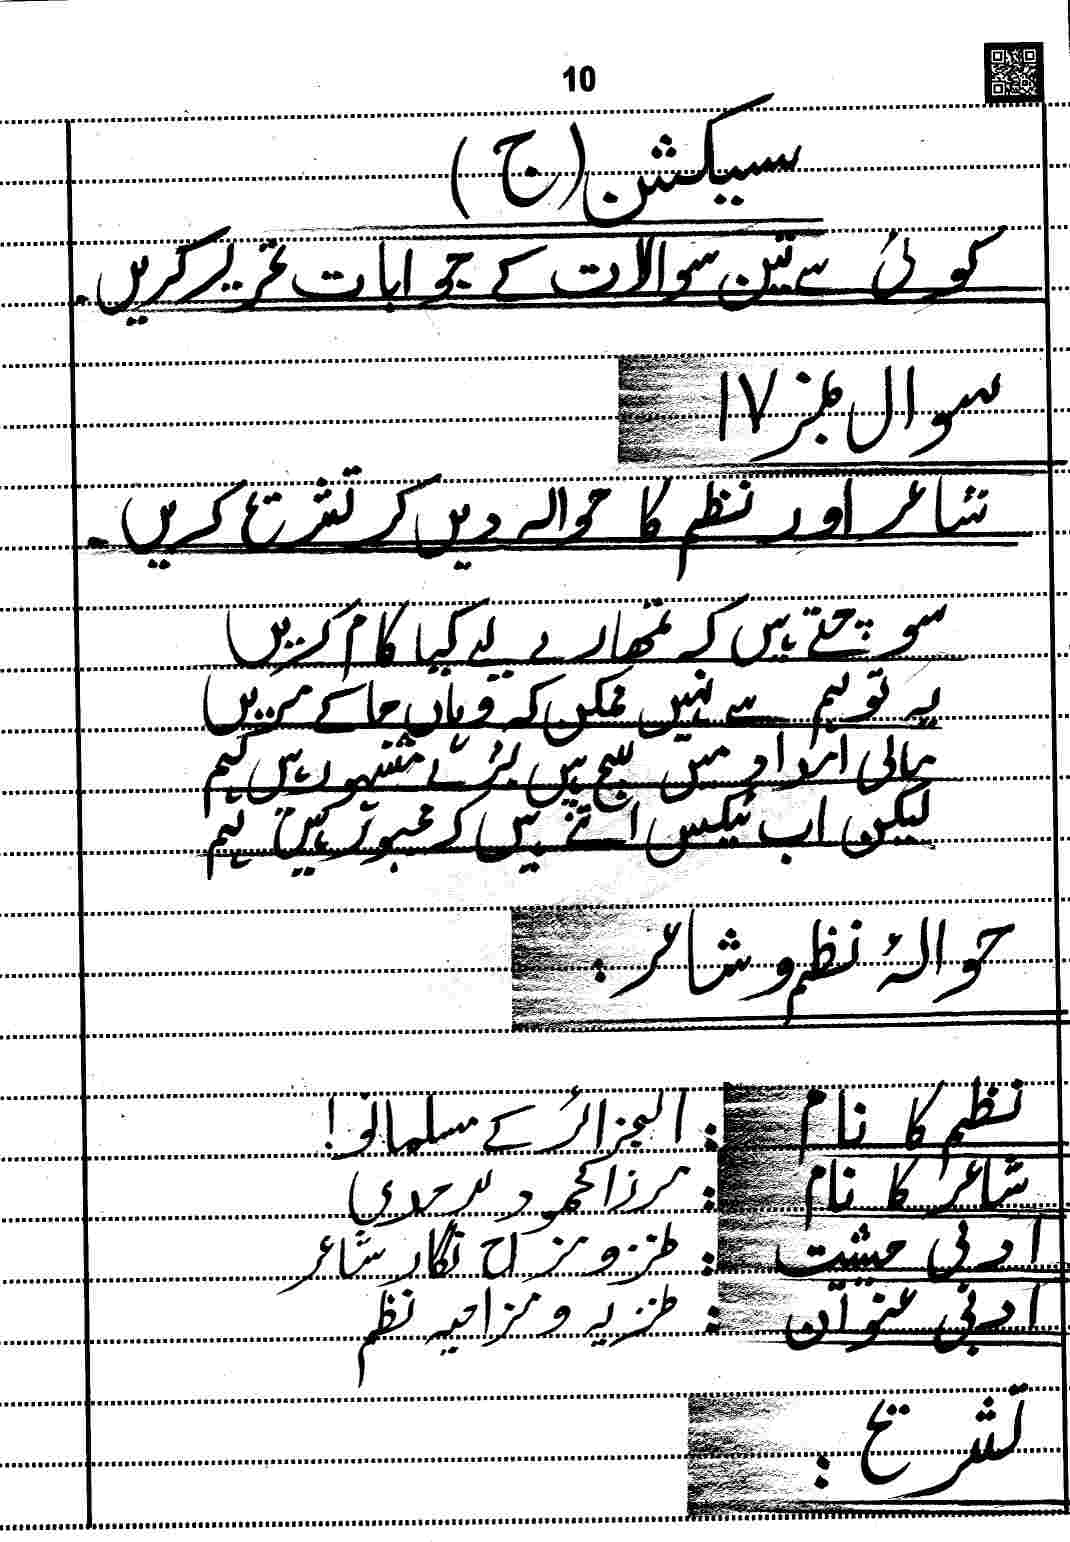 10
سیکشن (ج)
کوئی سے تین سوالات کے جوابات تحریر کریں۔
سوال نمبر ۱۷
شاعر اور نظم کا حوالہ دیں کر تشریح کریں۔
سوچتے ہیں کہ تمھارے لیے کیا کام کریں
یہ تو ہم سے نہیں ممکن کہ وہاں جا کے مریں
مالی امداد میں سچ ہیں بڑے مشہور ہیں ہم
لیکن اب ٹیکس اتنے ہیں کہ مجبور ہیں ہم
حوالۂ نظم و شاعر:
نظم کا نام : الجزائر کے مسلمانو!
شاعر کا نام : مرزا محمود سرحدی
ادبی حیثیت : طنز و مزاح نگار شاعر
ادبی عنوان : طنزیہ و مزاحیہ نظم
تشریح :